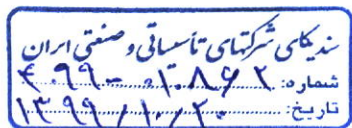 سندیکای شرکتهای تأسیساتی و صنعتی ایران
شماره: ۴۰۹۹-۰۱۰۸۶۲
تاریخ: ۱۳۹۹/۱۰/۲۰